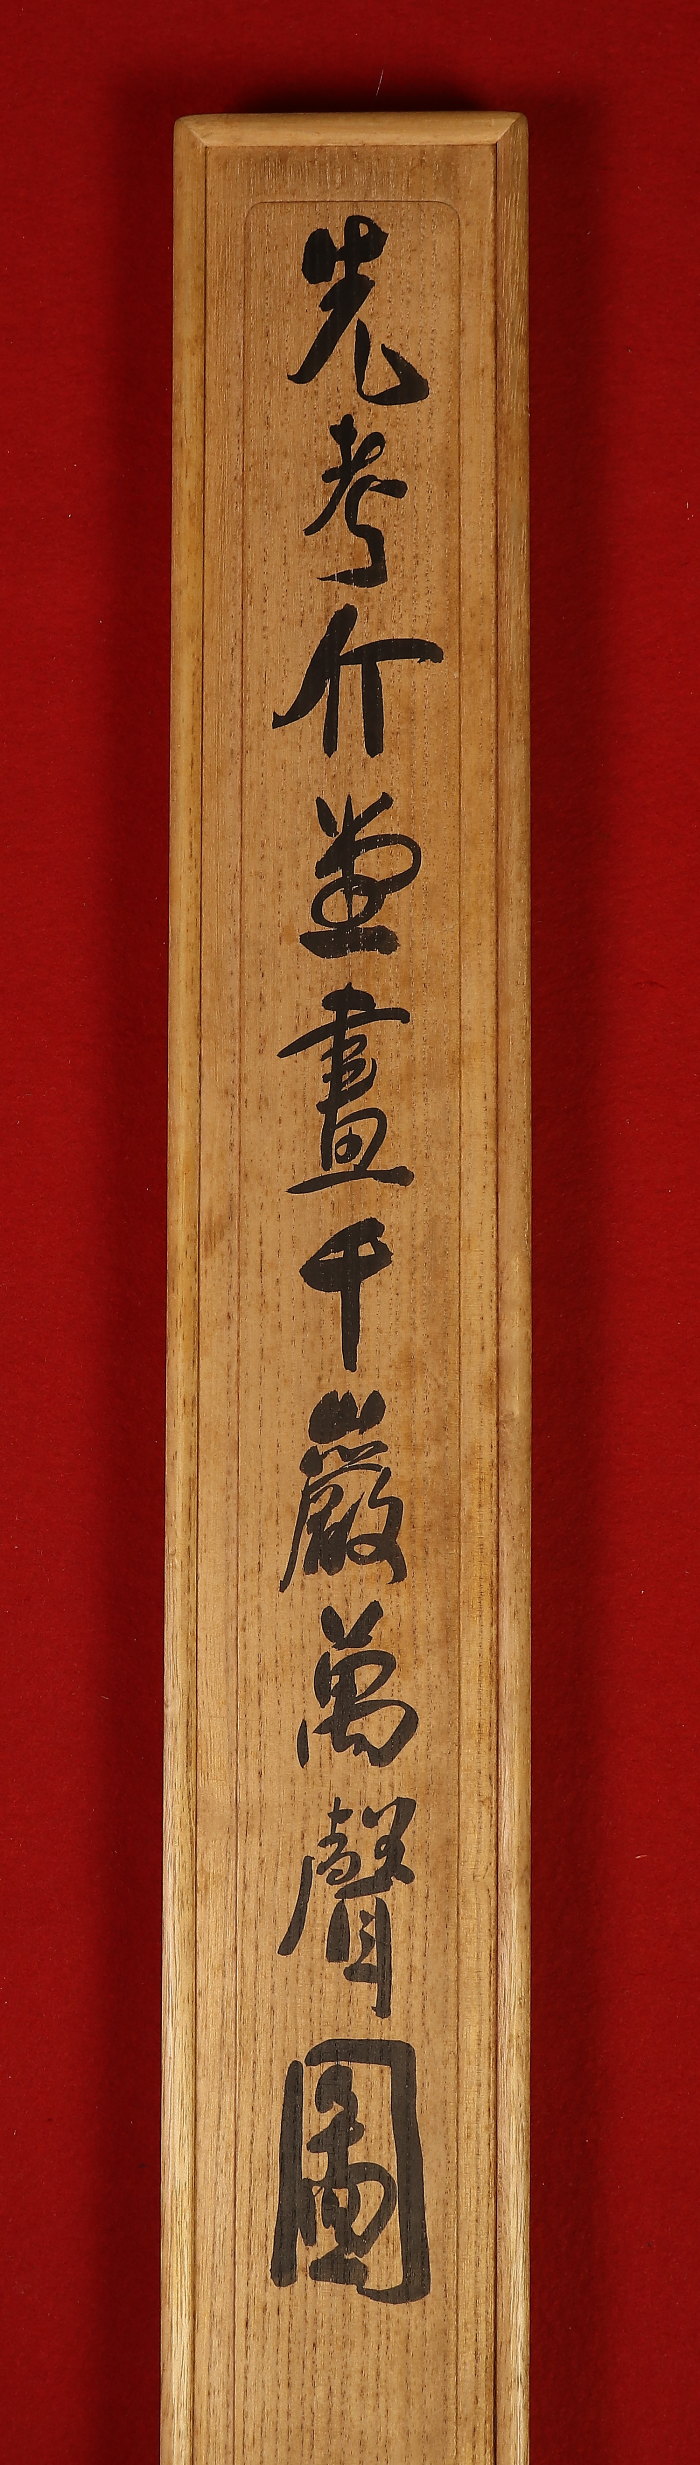 先考介堂畫千巖萬聲圖